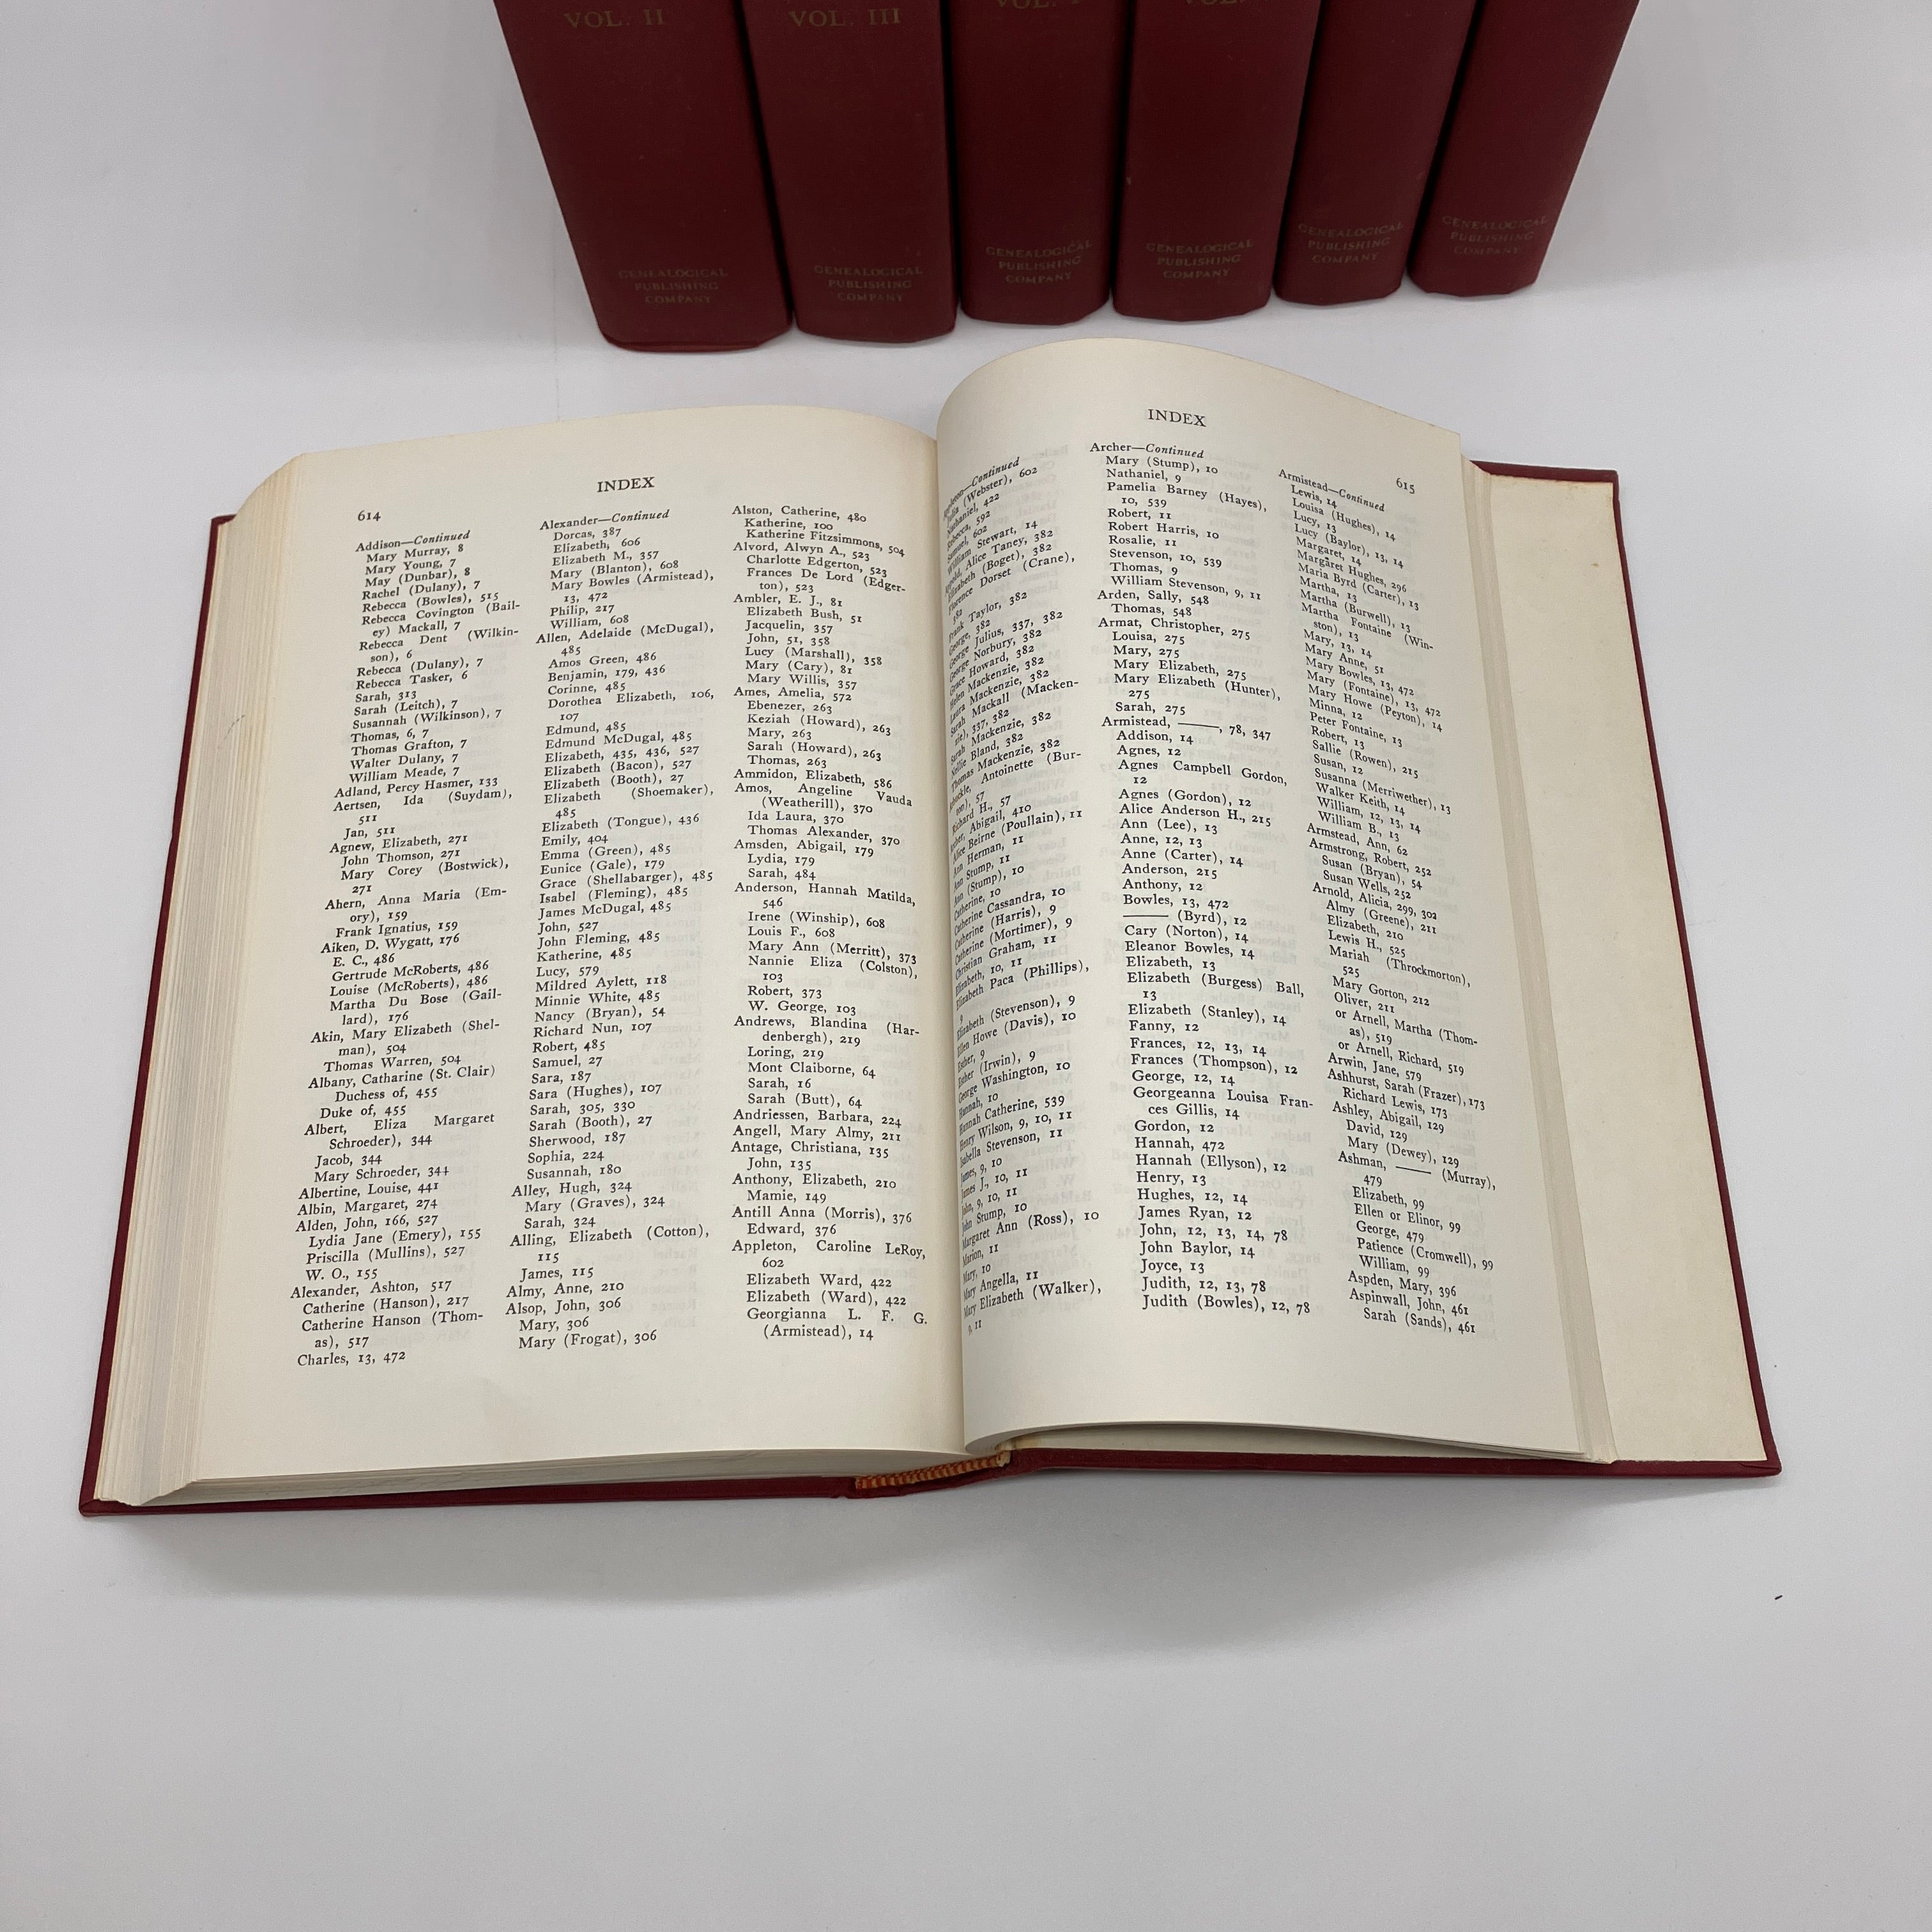 VOL. II
VOL. III
VOL.
VOL.
GENEALOGICAL
PUBLISHING
COMPANY
GENEALOGICAL
PUBLISHING
COMPANY
GENEALOGICAL
PUBLISHING
COMPANY
GENEALOGICAL
PUBLISHING
COMPANY
GENEALOGICAL
PUBLISHING
COMPANY
GENEALOGICAL
PUBLISHING
COMPANY
614
INDEX
Addison—Continued
Mary Murray, 8
Mary Young, 7
May (Dunbar), 8
Rachel (Dulany), 7
Rebecca (Bowles), 515
Rebecca Covington (Bail-
ey) Mackall, 7
Rebecca Dent (Wilkin-
son), 6
Rebecca (Dulany), 7
Rebecca Tasker, 6
Sarah, 313
Sarah (Leitch), 7
Susannah (Wilkinson), 7
Thomas, 6, 7
Thomas Grafton, 7
Walter Dulany, 7
William Meade, 7
Adland, Percy Hasmer, 133
Aertsen, Ida (Suydam),
511
Jan, 511
Agnew, Elizabeth, 271
John Thomson, 271
Mary Corey (Bostwick),
271
Ahern, Anna Maria (Em-
ory), 159
Frank Ignatius, 159
Aiken, D. Wygatt, 176
E. C., 486
Gertrude McRoberts, 486
Louise (McRoberts), 486
Martha Du Bose (Gail-
lard), 176
Akin, Mary Elizabeth (Shel-
man), 504
Thomas Warren, 504
Albany, Catharine (St. Clair)
Duchess of, 455
Duke of, 455
Albert, Eliza Margaret
Schroeder), 344
Jacob, 344
Mary Schroeder, 344
Albertine, Louise, 441
Albin, Margaret, 274
Alden, John, 166, 527
Lydia Jane (Emery), 155
Priscilla (Mullins), 527
W. O., 155
Alexander, Ashton, 517
Catherine (Hanson), 217
Catherine Hanson (Thom-
as), 517
Charles, 13, 472
Alexander—Continued
Dorcas, 387
Elizabeth, 606
Elizabeth M., 357
Mary (Blanton), 608
Mary Bowles (Armistead),
13, 472
Philip, 217
William, 608
Allen, Adelaide (McDugal),
485
Amos Green, 486
Benjamin, 179, 436
Corinne, 485
Dorothea Elizabeth, 106,
107
Edmund, 485
Edmund McDugal, 485
Elizabeth, 435, 436, 527
Elizabeth (Bacon), 527
Elizabeth (Booth), 27
Elizabeth (Shoemaker),
485
Elizabeth (Tongue), 436
Emily, 404
Emma (Green), 485
Eunice (Gale), 179
Grace (Shellabarger), 485
Isabel (Fleming), 485
James McDugal, 485
John, 527
John Fleming, 485
Katherine, 485
Lucy, 579
Mildred Aylett, 118
Minnie White, 485
Nancy (Bryan), 54
Richard Nun, 107
Robert, 485
Samuel, 27
Sara, 187
Sara (Hughes), 107
Sarah, 305, 330
Sarah (Booth), 27
Sherwood, 187
Sophia, 224
Susannah, 180
Alley, Hugh, 324
Mary (Graves), 324
Sarah, 324
Alling, Elizabeth (Cotton),
115
James, 115
Almy, Anne, 210
Alsop, John, 306
Mary, 306
Mary (Frogat), 306
Alston, Catherine, 480
Katherine, 100
Katherine Fitzsimmons, 504
Alvord, Alwyn A., 523
Charlotte Edgerton, 523
Frances De Lord (Edger-
ton), 523
Ambler, E. J., 81
Elizabeth Bush, 51
Jacquelin, 357
John, 51, 358
Lucy (Marshall), 358
Mary (Cary), 81
Mary Willis, 357
Ames, Amelia, 572
Ebenezer, 263
Keziah (Howard), 263
Mary, 263
Sarah (Howard), 263
Thomas, 263
Ammidon, Elizabeth, 586
Amos, Angeline Vauda
(Weatherill), 370
Ida Laura, 370
Thomas Alexander, 370
Amsden, Abigail, 179
Lydia, 179
Sarah, 484
Anderson, Hannah Matilda,
546
Irene (Winship), 608
Louis F., 608
Mary Ann (Merritt), 373
Nannie Eliza (Colston),
103
Robert, 373
W. George, 103
Andrews, Blandina (Har-
denbergh), 219
Loring, 219
Mont Claiborne, 64
Sarah, 16
Sarah (Butt), 64
Andriessen, Barbara, 224
Angell, Mary Almy, 211
Antage, Christiana, 135
John, 135
Anthony, Elizabeth, 210
Mamie, 149
Antill Anna (Morris), 376
Edward, 376
Appleton, Caroline LeRoy,
602
Elizabeth Ward, 422
Elizabeth (Ward), 422
Georgianna L. F. G.
(Armistead), 14
INDEX
615
Continued
(Webster), 602
Nathaniel, 422
Rebecca, 592
Samuel, 602
William Stewart, 14
Alice Taney, 382
Elizabeth (Boget), 382
Florence Dorset (Crane),
382
Frank Taylor, 382
George, 382
George Julius, 337, 382
George Norbury, 382
Grace Howard, 382
Helen Mackenzie, 382
Laura Mackenzie, 382
Sarah Mackall (Macken-
zie), 337, 382
Sarah Mackenzie, 382
Nellie Bland, 382
Thomas Mackenzie, 382
Antoinette (Bur-
ton), 57
Richard H., 57
Archer, Abigail, 410
Alice Beirne (Poullain), 11
Ann Herman, 11
Ann Stump, 11
Ann (Stump), 10
Catherine, 10
Catherine Cassandra, 10
Catherine (Harris), 9
Catherine (Mortimer), 9
Christian Graham, 11
Elizabeth, 10, 11
Elizabeth Paca (Phillips),
9
Elizabeth (Stevenson), 9
Ellen Howe (Davis), 10
Esther, 9
Esther (Irwin), 9
George Washington, 10
Hannah, 10
Hannah Catherine, 539
Henry Wilson, 9, 10, 11
Isabella Stevenson, 11
James, 9, 10
James J., 10, 11
John, 9, 10, 11
John Stump, 10
Margaret Ann (Ross), 10
Marion, 11
Mary, 10
Mary Angella, 11
Mary Elizabeth (Walker),
9, 11
Archer—Continued
Mary (Stump), 10
Nathaniel, 9
Pamelia Barney (Hayes),
10, 539
Robert, 11
Robert Harris, 10
Rosalie, 11
Stevenson, 10, 539
Thomas, 9
William Stevenson, 9, 11
Arden, Sally, 548
Thomas, 548
Armat, Christopher, 275
Louisa, 275
Mary, 275
Mary Elizabeth, 275
Mary Elizabeth (Hunter),
275
Sarah, 275
Armistead, ——, 78, 347
Addison, 14
Agnes, 12
Agnes Campbell Gordon,
12
Agnes (Gordon), 12
Alice Anderson H., 215
Ann (Lee), 13
Anne, 12, 13
Anne (Carter), 14
Anderson, 215
Anthony, 12
Bowles, 13, 472
—— (Byrd), 12
Cary (Norton), 14
Eleanor Bowles, 14
Elizabeth, 13
Elizabeth (Burgess) Ball,
13
Elizabeth (Stanley), 14
Fanny, 12
Frances, 12, 13, 14
Frances (Thompson), 12
George, 12, 14
Georgeanna Louisa Fran-
ces Gillis, 14
Gordon, 12
Hannah, 472
Hannah (Ellyson), 12
Henry, 13
Hughes, 12, 14
James Ryan, 12
John, 12, 13, 14, 78
John Baylor, 14
Joyce, 13
Judith, 12, 13, 78
Judith (Bowles), 12, 78
Armistead—Continued
Lewis, 14
Louisa (Hughes), 14
Lucy, 13
Lucy (Baylor), 13, 14
Margaret, 14
Margaret Hughes, 296
Maria Byrd (Carter), 13
Martha, 13
Martha (Burwell), 13
Martha Fontaine (Win-
ston), 13
Mary, 13, 14
Mary Anne, 51
Mary Bowles, 13, 472
Mary (Fontaine), 13, 472
Mary Howe (Peyton), 14
Minna, 12
Peter Fontaine, 13
Robert, 13
Sallie (Rowen), 215
Susan, 12
Susanna (Merriwether), 13
Walker Keith, 14
William, 12, 13, 14
William B., 13
Armstead, Ann, 62
Armstrong, Robert, 252
Susan (Bryan), 54
Susan Wells, 252
Arnold, Alicia, 299, 302
Almy (Greene), 211
Elizabeth, 210
Lewis H., 525
Mariah (Throckmorton),
525
Mary Gorton, 212
Oliver, 211
or Arnell, Martha (Thom-
as), 519
or Arnell, Richard, 519
Arwin, Jane, 579
Ashhurst, Sarah (Frazer), 173
Richard Lewis, 173
Ashley, Abigail, 129
David, 129
Mary (Dewey), 129
Ashman, —— (Murray),
479
Elizabeth, 99
Ellen or Elinor, 99
George, 479
Patience (Cromwell), 99
William, 99
Aspden, Mary, 396
Aspinwall, John, 461
Sarah (Sands), 461